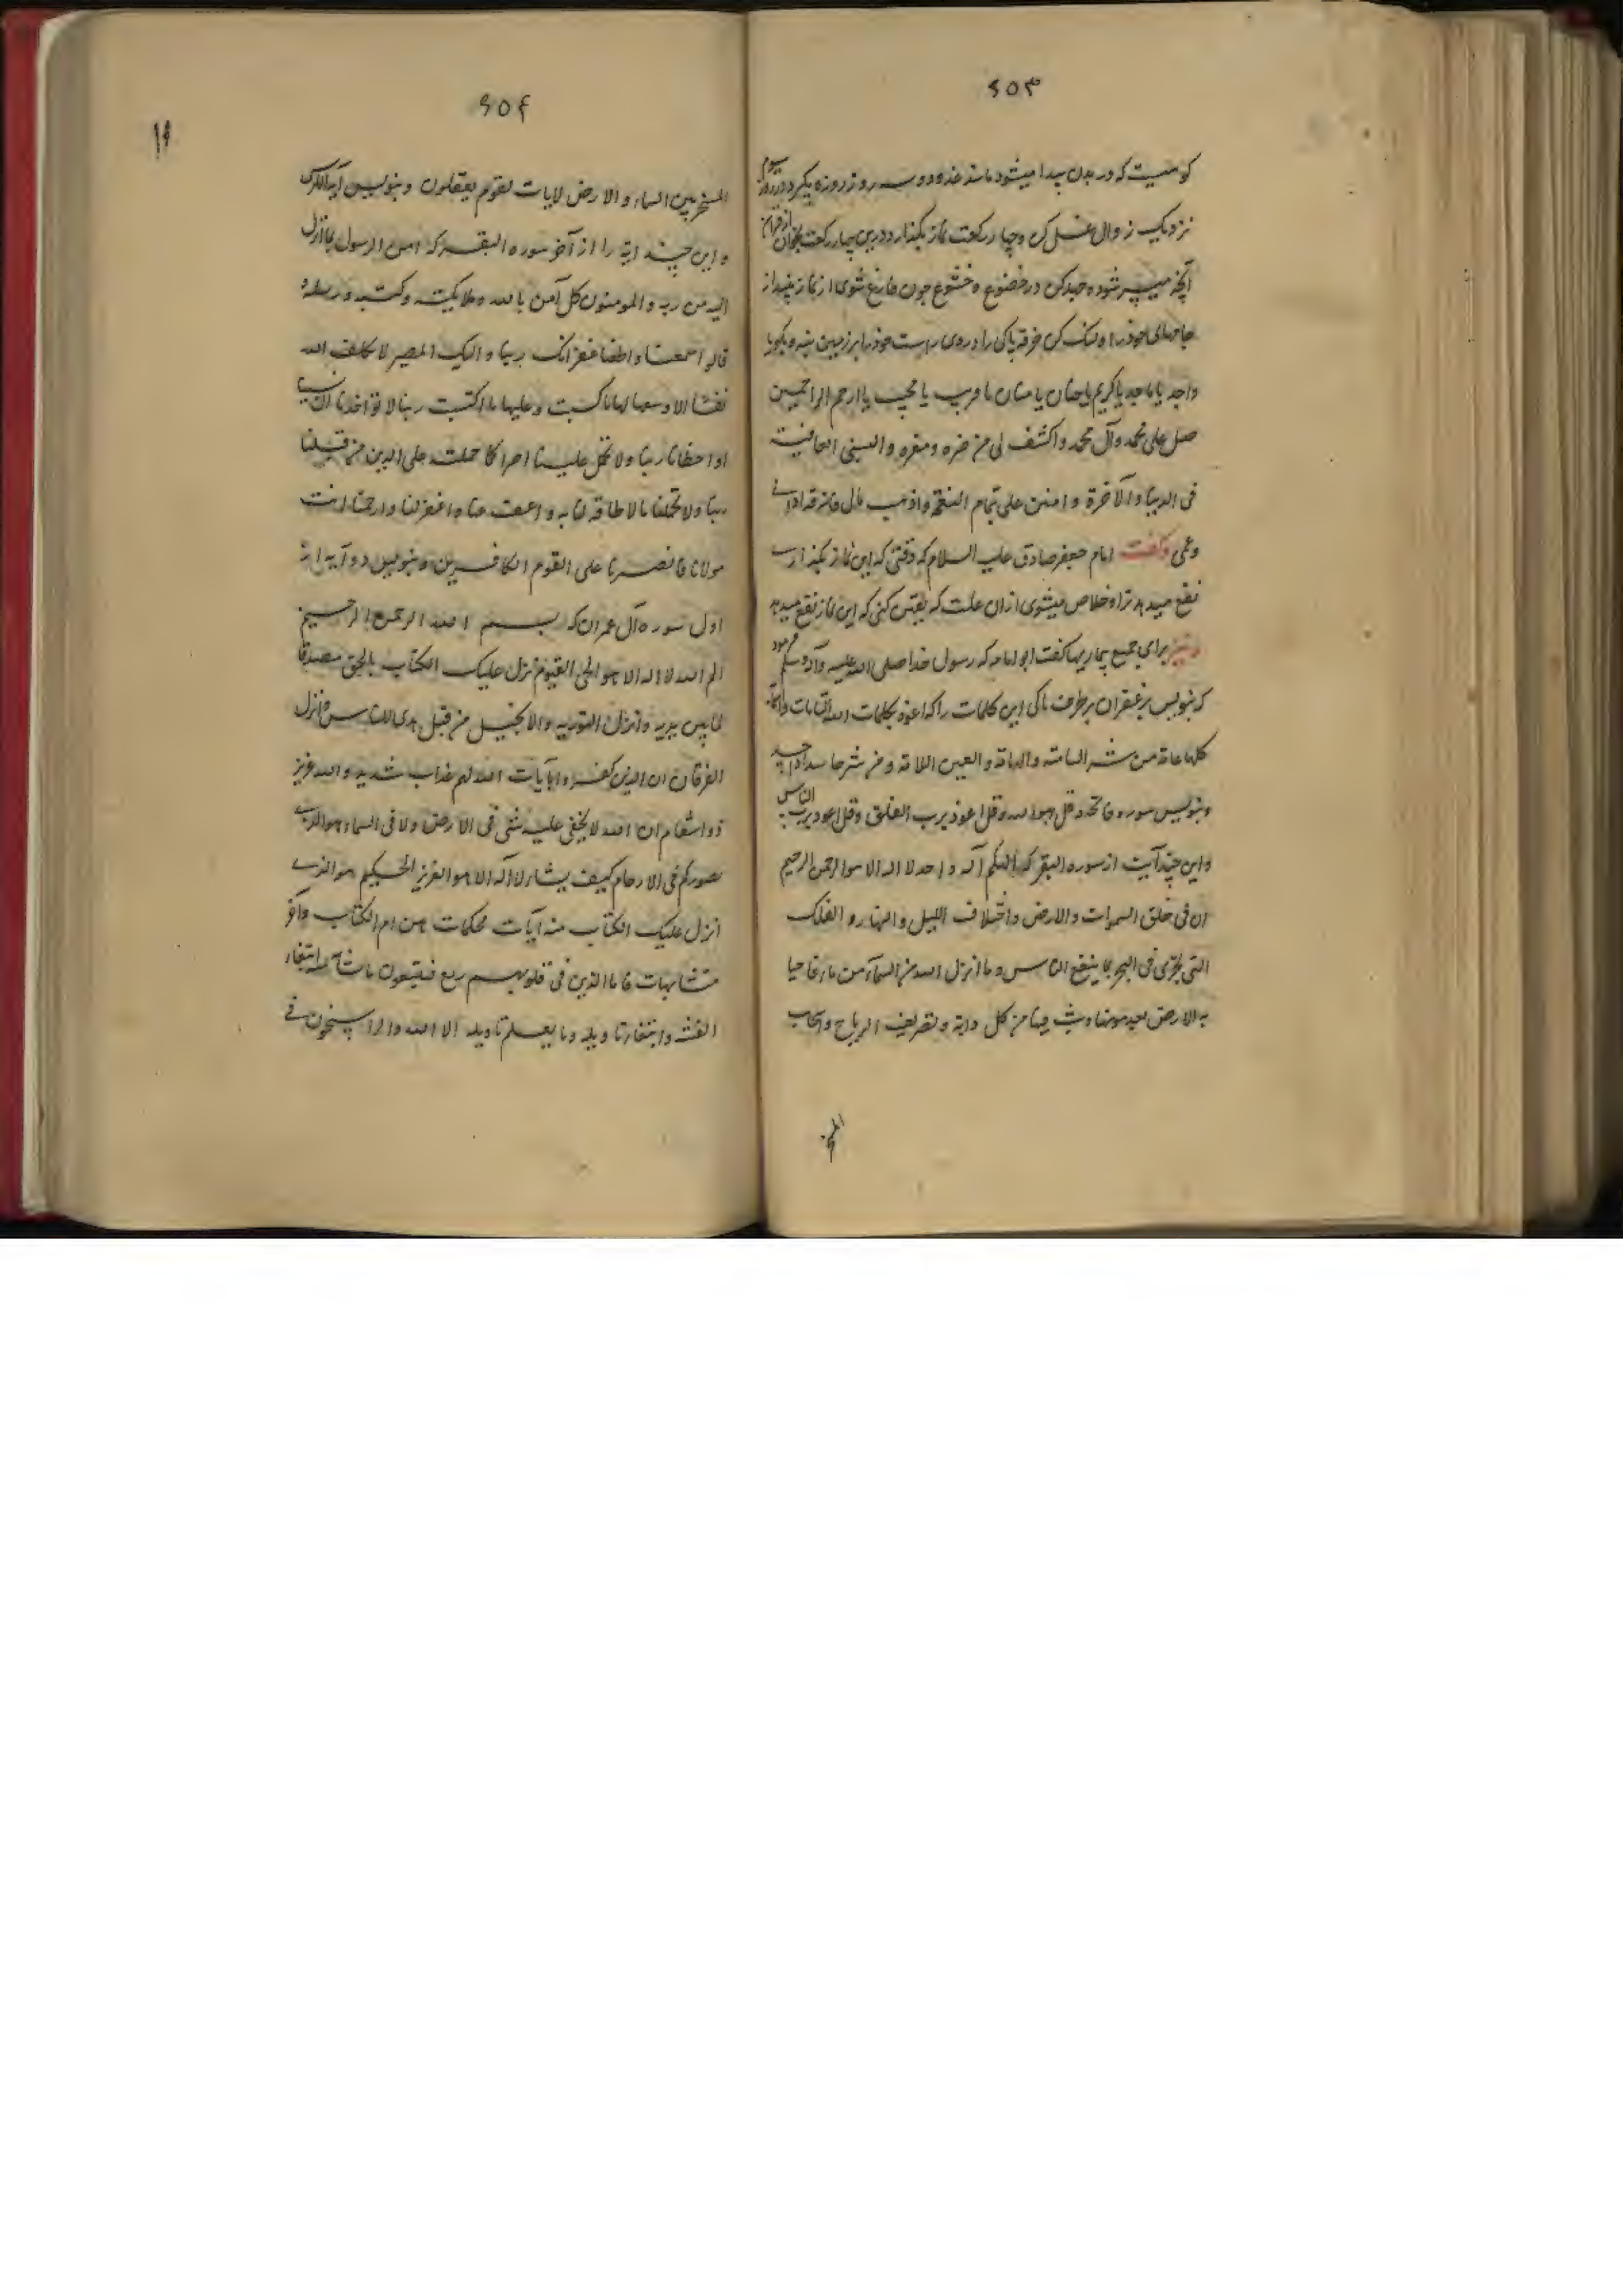 ۶۰۳
که در بدن پیدا میشود مانند غده و دو سه روز روزه بگیر و در روز سوم
نزدیک زوال غسل کن و چهار رکعت نماز بگذار و درین چهار رکعت بخوان از قرآن
آنچه میسر شود و جهد کن در خضوع و خشوع چون فارغ شوی از نماز بینداز
جامهای خود را و لنگ کن خرقه پاکی را و روی راست خود را بر زمین بنه و بگو یا
واجد یا ماجد یا کریم یا حنان یا منان یا قریب یا مجیب یا ارحم الراحمین
صل علی محمد و آل محمد و اکشف لی من ضره و معره و البسنی العافیة
فی الدنیا و الآخرة و امنن علی بتمام النعمة و اذهب مالی فانه قد اذانی
و غمی و گفت امام جعفر صادق علیه السلام که وقتی که این نماز بگذاری
نفع میدهد ترا و خلاص میشوی از ان علت که یقین کنی که این نماز نفع میدهد
و نیز برای جمیع بیماریها گفت ابو امامه که رسول خدا صلی الله علیه و آله وسلم فرمود
که بنویس بزعفران بر ظرف پاکی این کلمات را که اعوذ بکلمات الله التامات و اسمائه
کلها عامة من شر السامة و الهامة و العین اللامة و من شر حاسد اذا حسد
و بنویس سوره فاتحه و قل هو الله و قل اعوذ برب الفلق و قل اعوذ برب الناس
و این چند آیت از سوره البقر که الهکم آله واحد لا اله الا هو الرحمن الرحیم
ان فی خلق السموات و الارض و اختلاف اللیل و النهار و الفلک
التی تجری فی البحر بما ینفع الناس و ما انزل الله من السمآء من ماء فاحیا
به الارض بعد موتها و بث فیها من کل دابة و تصریف الریاح و السحاب
المسخر
۶۰۴
المسخر بین السماء و الارض لایات لقوم یعقلون و بنویس آیة الکرسی
و این چند ایة را از آخر سوره البقر که امن الرسول بما انزل
الیه من ربه و المومنون کل آمن بالله و ملایکته و کتبه و رسله و
قالوا سمعنا و اطعنا غفرانک ربنا و الیک المصیر لا یکلف الله
نفسا الا وسعها لها ما کسبت و علیها ما اکتسبت ربنا لا تواخذنا ان نسینا
او اخطانا ربنا و لا تحمل علینا اصرا کما حملته علی الذین من قبلنا
ربنا و لا تحملنا ما لا طاقة لنا به و اعف عنا و اغفر لنا و ارحمنا انت
مولانا فانصرنا علی القوم الکافرین و بنویس دو آیه از
اول سوره آل عمران که بسم الله الرحمن الرحیم
الم الله لا اله الا هو الحی القیوم نزل علیک الکتاب بالحق مصدقا
لما بین یدیه و انزل التوریه و الانجیل من قبل هدی للناس و انزل
الفرقان ان الذین کفروا بآیات الله لهم عذاب شدید و الله عزیز
ذو انتقام ان الله لا یخفی علیه شی فی الارض و لا فی السماء هو الذی
یصورکم فی الارحام کیف یشاء لا آله الا هو العزیز الحکیم هو الذی
انزل علیک الکتاب منه آیات محکمات هن ام الکتاب و آخر
متشابهات فاما الذین فی قلوبهم زیع فیتبعون ما تشابه منه ابتغاء
الفتنه و ابتغاء تاویله و ما یعلم تاویله الا الله و الراسخون فی